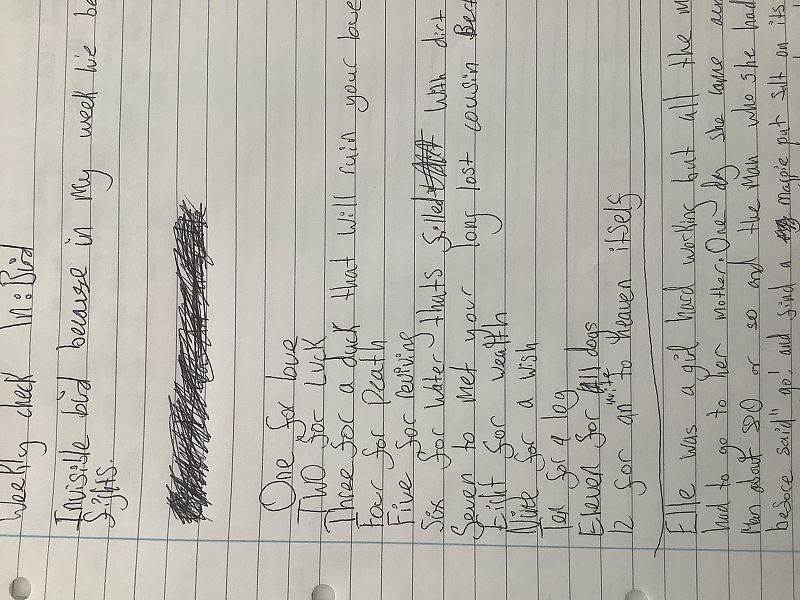 Weekly check In: Bird
Invisible bid because in my week we be
fights.
One for love
Two for luck
Three for a duck that will ruin your love
Four for Death
Five for reviving
Six for water thats filled with dirt
Seven to met your long lost cousin Bert
Eight for wealth
Nine for a wish
Ten for a log
Eleven for all dogs
12 for an invite to heaven itself
Elle was a girl hard working but all the m
had to go to her mother. One day she came
Man about 50 or so and the Man who she had
before said "go! and find a magpie put salt on its